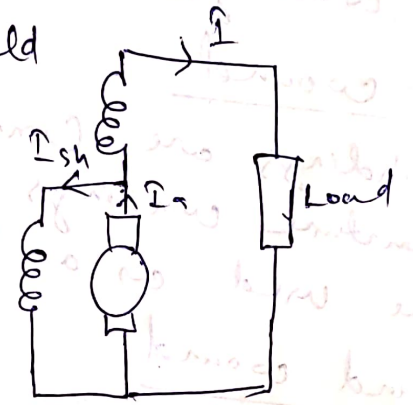 eld
I
I sh
I a
Load